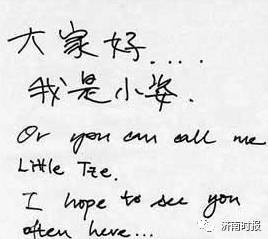 大家好....
我是小姿.
Or you can call me
Little Tze.
I hope to see you
often here...
济南时报